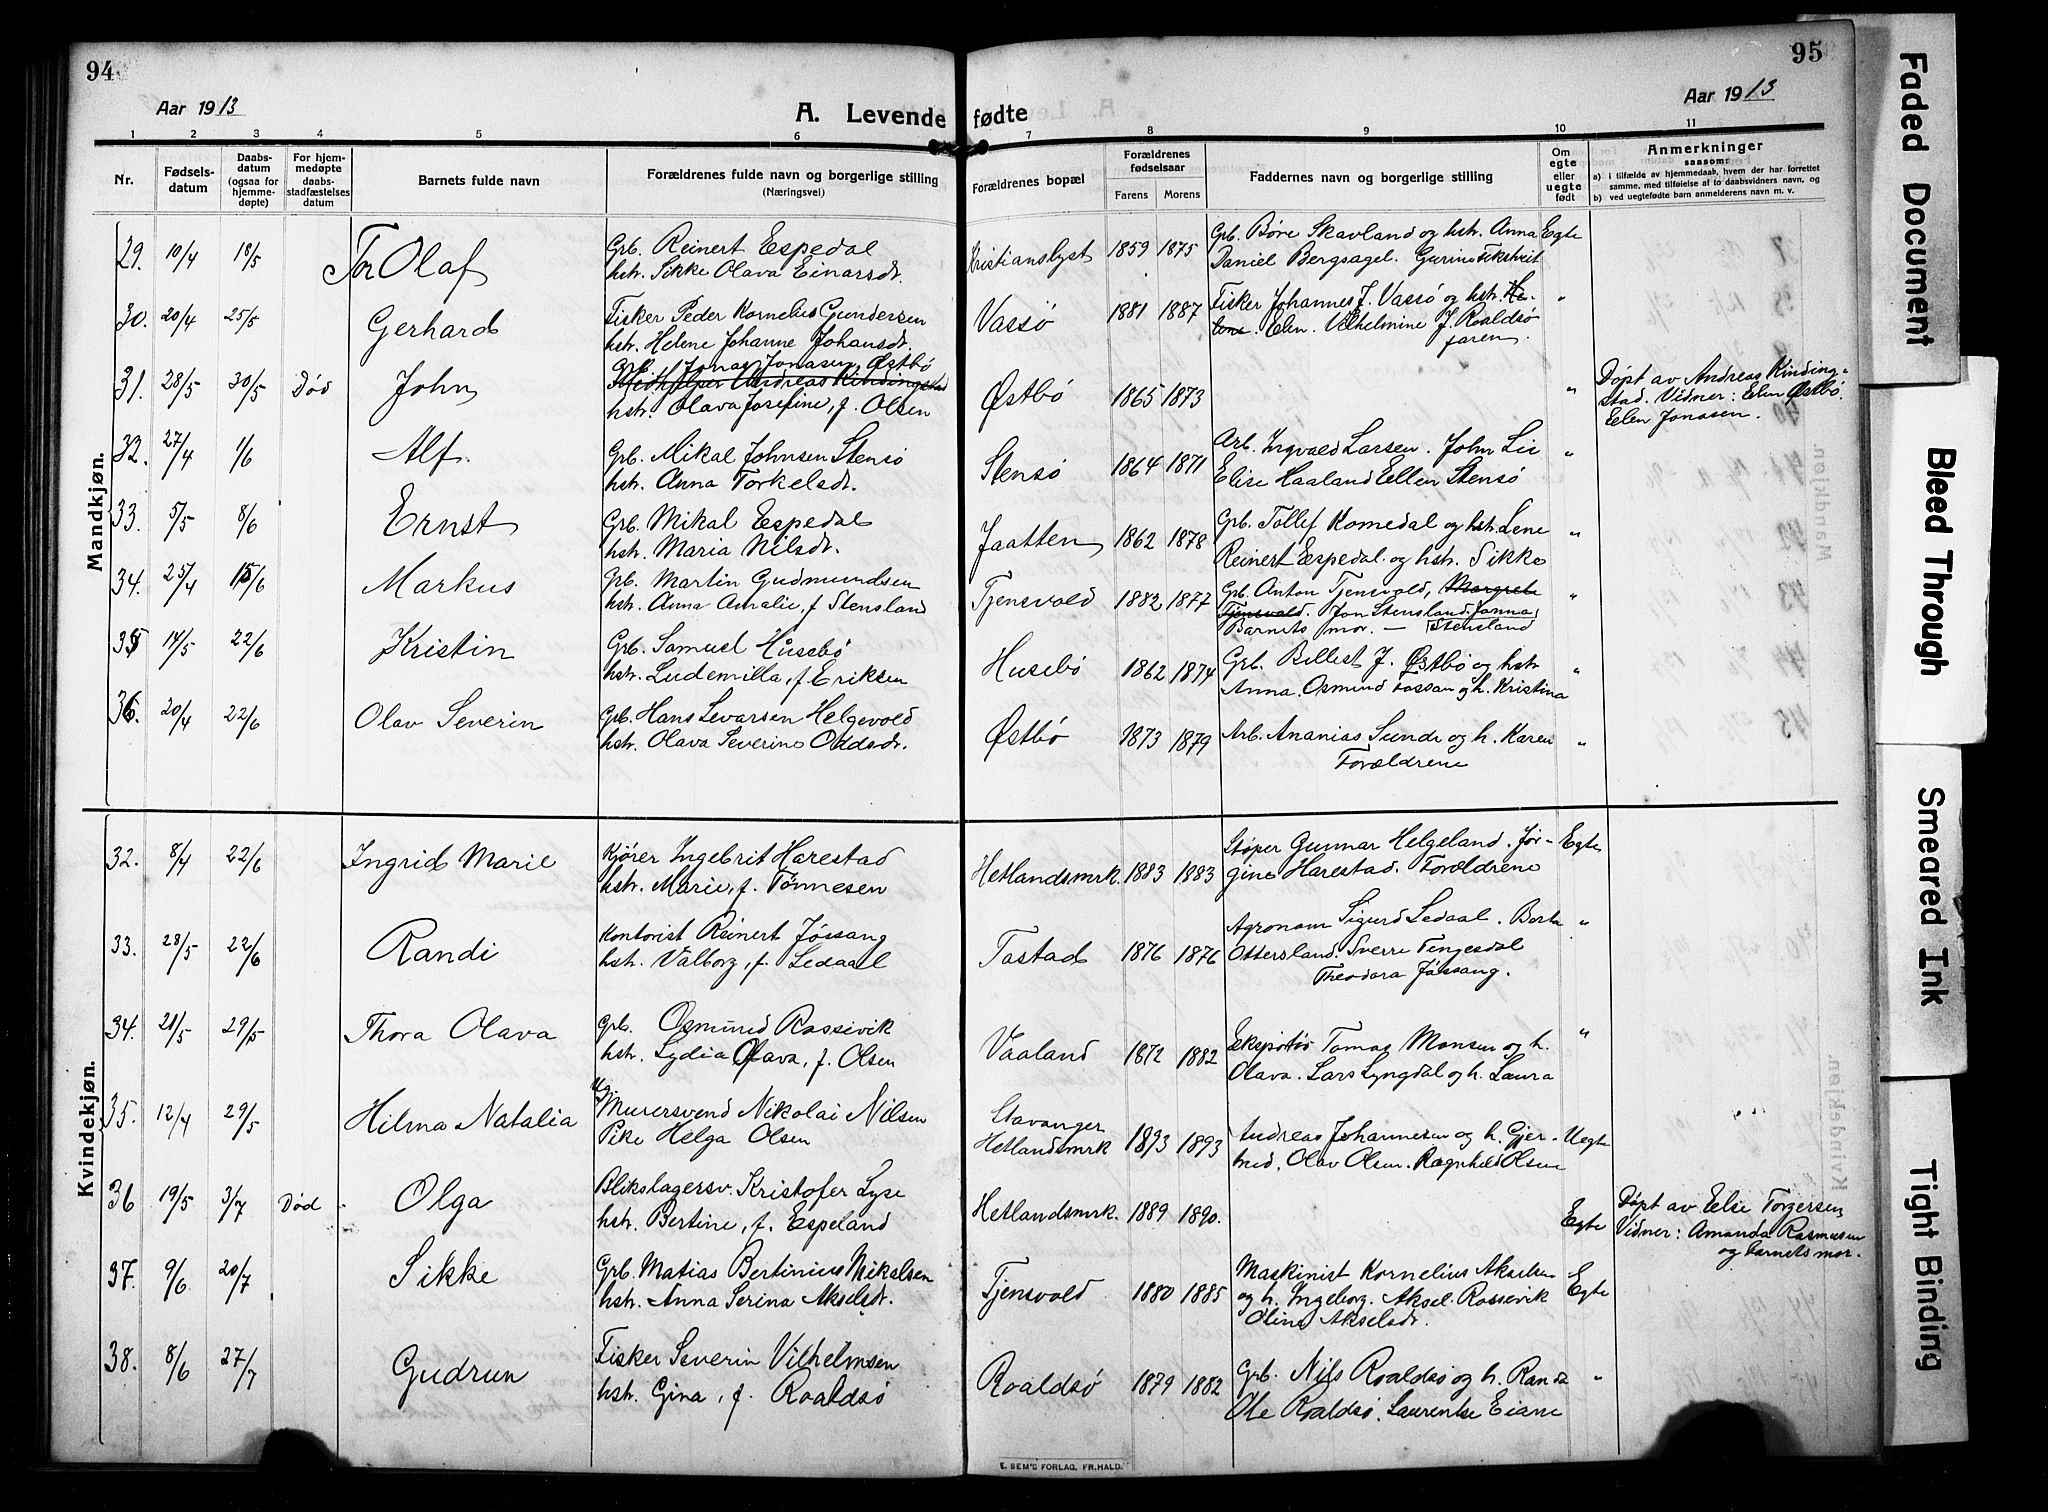 94
95
Aar 1913
A. Levende fødte
Aar 1913
1 2 3 4 5 6 7 8 9 10 11
Nr.
Fødsels-
datum
Daabs-
datum
(ogsaa for
hjemme-
døpte)
For hjem-
medøpte
daabs-
stadfæstelses
datum
Barnets fulde navn
Forældrenes fulde navn og borgerlige stilling
(Næringsvei)
Forældrenes bopæl
Forældrenes
fødselsaar
Farens Morens
Faddernes navn og borgerlige stilling
Om
egte
eller
uegte
født
Anmerkninger
saasom:
a) i tilfælde av hjemmedaab, hvem der har forrettet
samme, med tilføielse af to daabsvidners navn, og
b) ved uegtefødte barn anmelderens navn m. v.
Mandkjøn.
29. 10/4 18/5 Tor Olaf
Grb. Reinert Espedal
hstr. Sikke Olava Einarsdt.
Kristianslyst 1859 1875
Grb. Børe Skavland og hstr. Anna
Daniel Bergsagel. Gurine
Egte
30. 20/4 25/5 Gerhard
Fisker Peder Kornelius Gundersen
hstr. Helene Johanne Johansdt.
Vassø 1881 1887
Fisker Johannes J. Vassø og hstr. He-
lene. Elen Vilhelmine J. Roaldsø
faren.
"
31. 28/5 30/5 Død John
Grb. Jonas Jonasen Østbø
Andreas Kindingstad
hstr. Olava Josefine, f. Olsen
Østbø 1865 1873
"
Døpt av Andreas Kinding-
stad. Vidner: Elen Østbø.
Elen Jonasen.
32. 27/4 1/6 Alf.
Grb. Mikal Johnsen Stensø
hstr. Anna Torkelsdt.
Stensø 1864 1871
Arb. Ingvald Larsen. John Lie
Elise Haaland Ellen Stensø
"
33. 5/5 8/6 Ernst
Grb. Mikal Espedal
hstr. Maria Nilsdt.
Jaatten 1862 1878
Grb. Tollef Komedal og hstr. Lene
Reinert Espedal og hstr. Sikke
"
34. 25/4 15/6 Markus
Grb. Martin Gudmundsen
hstr. Anna Amalie, f Stensland
Tjensvold 1882 1877
Grb. Anton Tjensvold, Margrete
Tjensvold. Jon Stensland. Janna
Barnets mor. — Stensland
"
35 14/5 22/6 Kristin
Grb. Samuel Husebø
hstr. Ludemilla, f Eriksen
Husebø 1862 1874
Grb. Bellest J. Østbø og hstr
Anna. Osmund og h. Kristina
"
36. 20/4 22/6 Olav Severin
Grb. Hans Levarsen Helgevold
hstr. Olava Severine Oddsdt.
Østbø 1873 1879
Arb. Ananias Sunde og h. Karen
Forældrene
"
Kvindekjøn.
32. 8/4 22/6 Ingrid Marie
Kjører Ingebrit Harestad
hstr. Marie, f. Tønnesen
Hetlandsmrk. 1883 1883
Støper Gunnar Helgeland. Jør-
gine Harestad. Forældrene
Egte
33. 28/5 22/6 Randi
Kontorist Reinert Jøssang
hstr. Valborg, f. Ledaal
Tastad 1876 1876
Agronom Sigurd Ledaal. Berta
Ottersland. Sverre Tengesdal
Theodora Jøssang.
"
34. 21/5 29/5 Thora Olava
Grb. Osmund Rossivik
hstr. Lydia Olava, f. Olsen
Vaaland 1872 1882
Ekspeditør Tomas Monsen og h.
Olava. Lars Lyngdal og h. Laura
"
35. 12/4 29/5 Hilma Natalia
Ug.
Murersvend Nikolai Nilsen
Pike Helga Olsen
Stavanger
Hetlandsmrk 1893 1893
Andreas Johannesen og h. Gjer-
trud, Olav Olsen. Ragnhild Olsen
Uegte
36 19/5 3/7 Død Olga
Blikslagersv. Kristofer Lyse
hstr. Bertine, f. Espeland
Hetlandsmrk. 1889 1890.
Egte
Døpt av Else Torgersen
Vidner: Amanda Rasmussen
og barnets mor.
37. 9/6 20/7 Sikke
Grb. Matias Bertinius Mikalsen
hstr. Anna Serina Akselsdt.
Tjensvold 1880 1885
Maskinist Kornelius Akselsen
og h. Ingeborg. Aksel Rossevik
Oline Akselsdt.
Egte
38. 8/6 27/7 Gudrun
Fisker Severin Vilhelmsen
hstr. Gina, f. Roaldsø
Roaldsø 1879 1882
Grb. Nils Roaldsø og h. Randa
Ole Roaldsø. Laurentse Eiane
"
E. SEM'S FORLAG, FR.HALD.
Faded Document
Bleed Through
Smeared Ink
Tight Binding